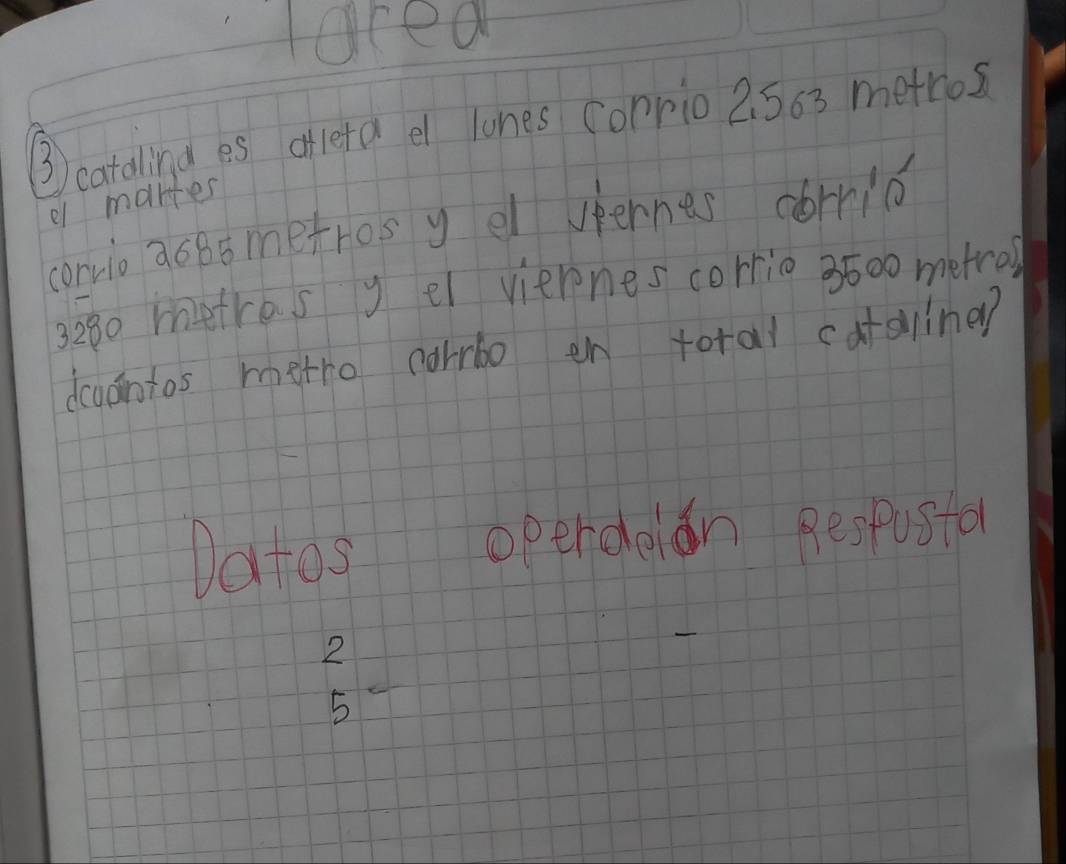 Tarea
③ catalina es atleta el lunes corrio 2.563 metros
el martes
corrio 2685 metros y el viernes corrió
3280 metros y el viernes corrio 3500 metros
¿cuántos metro corrio en total catalina?
Datos operación Respusta
2
5